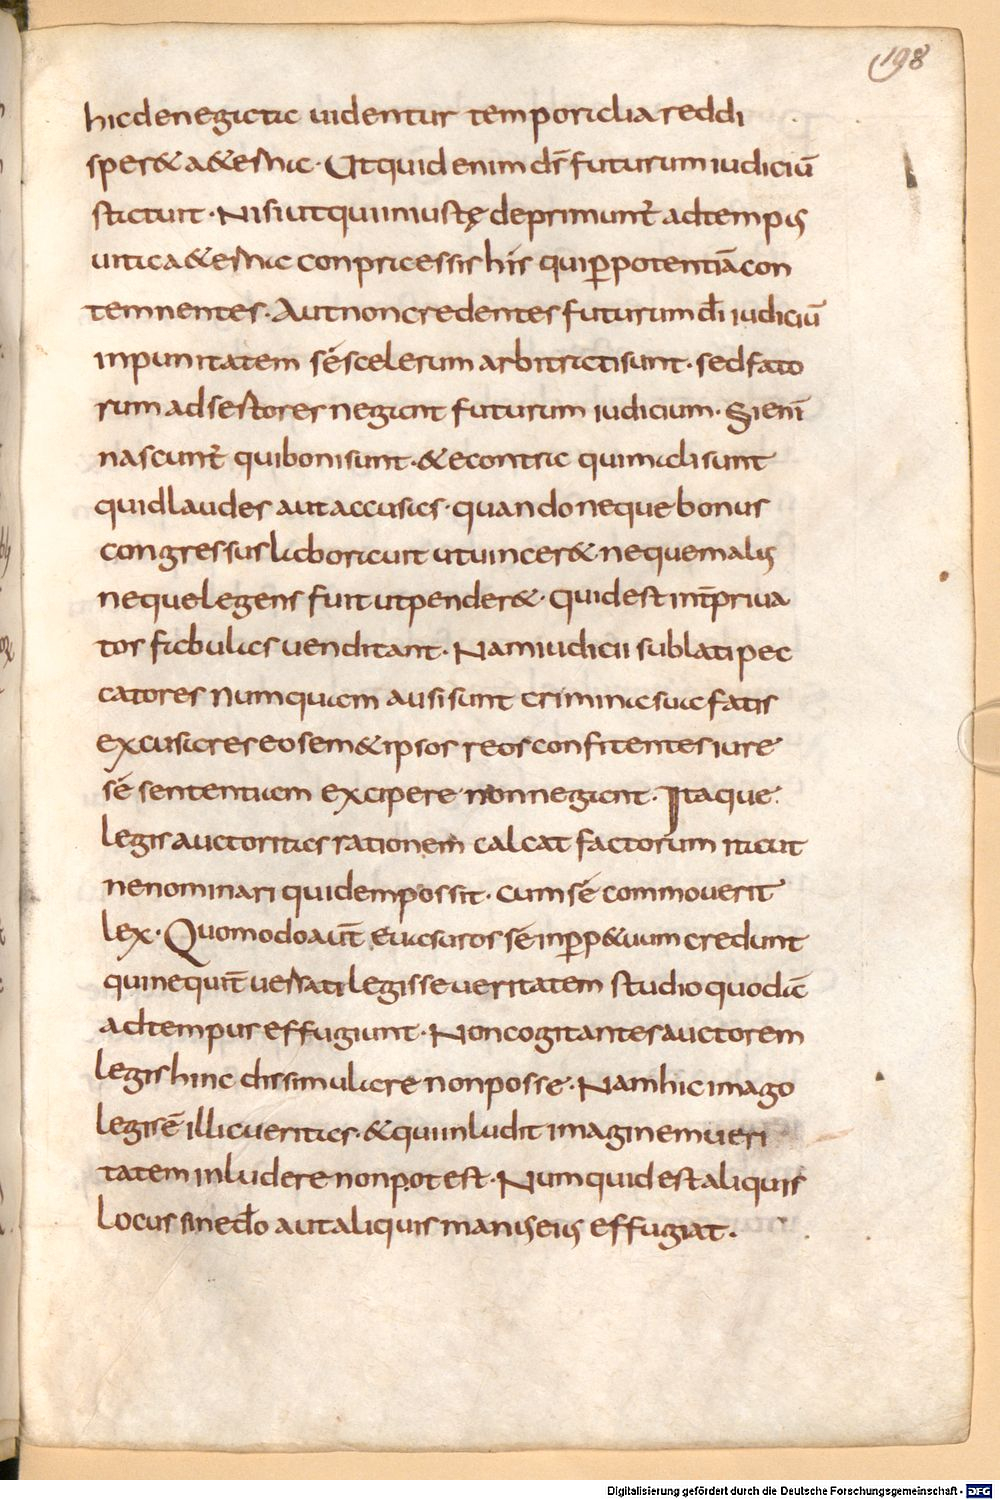 198
hic denegata uidentur temporalia reddi
sper& a&erna. Ut quid enim dr̄ futurum iudiciū
statuit. Nisi ut qui iniustę deprimunt᷑ ad tempus
uita a&erna conpricessis his qui ꝑ potentiā con
temnentes. Aut non credentes futurum dī iudiciū
inpunitatem sé scelerum arbitrati sunt. sed fato
rum adsertores negant futurum iudicium. Si enī
nascunt᷑ qui boni sunt. & e contra qui mali sunt
quid laudes aut accusas. quando neque bonus
congressus laborauit ut uincer&. neque malus
neque legens fuit ut pender&. Quid est in̄t priua
tos fabulas uenditant. Nam iudicii sublati pec
catores numquam ausi sunt crimina sua fatis
excusare reos em& ipsos reos confitentes iure
sé sententiam excipere non negant. Itaque
legis auctoritas rationem calcat factorum ita ut
ne nominari quidem possit. cum sé commouerit
lex. Quomodo aūt euasuros sé in ꝑp&uum credunt
qui nequit̄ uersati legisse ueritatem studio quo dīe
ad tempus effugiunt. Non cogitantes auctorem
legis hinc dissimulare non posse. Nam hic imago
legis ē illic ueritas. & qui inludit imaginem ueri
tatem inludere non potest. Numquid est aliquis
locus sine do aut aliquis manus eius effugiat.
Digitalisierung gefördert durch die Deutsche Forschungsgemeinschaft - DFG